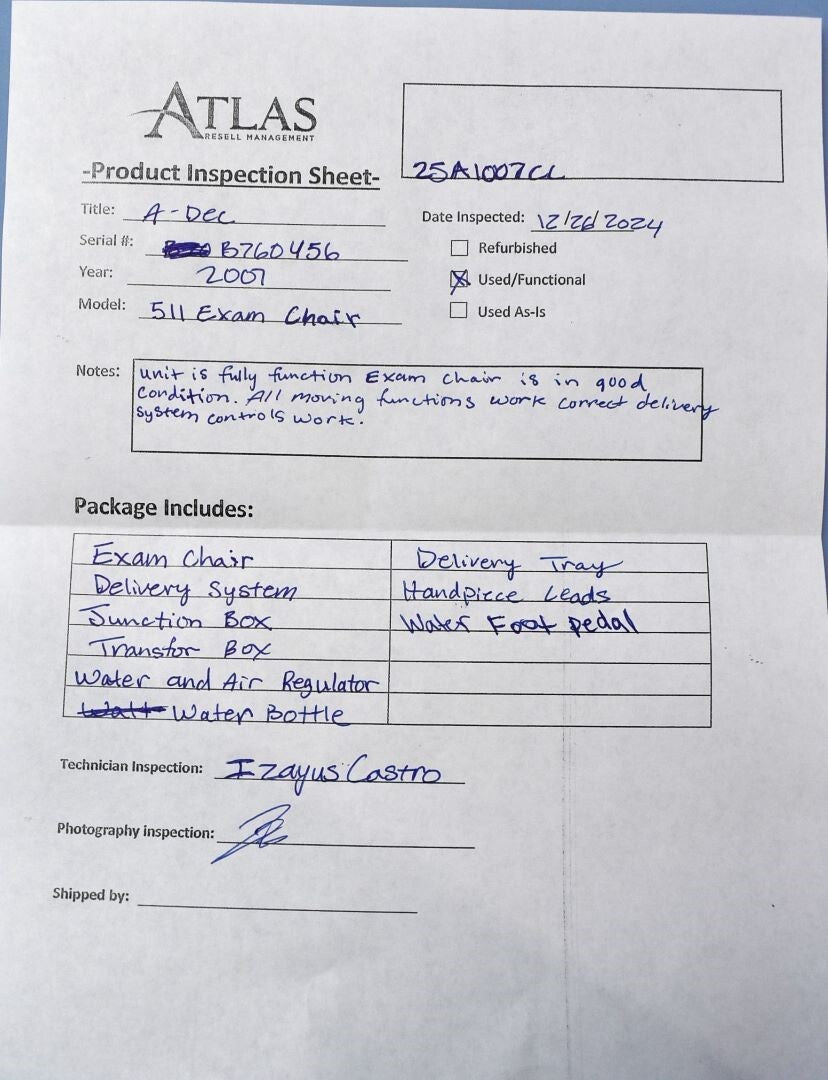 ATLAS
RESELL MANAGEMENT
25A1007CL
-Product Inspection Sheet-
Title: A-Dec
Date Inspected: 12/26/2024
Serial #: B760456
Refurbished
Year: 2007
Used/Functional
Model: 511 Exam Chair
Used As-Is
Notes: unit is fully function Exam chair is in good
condition. All moving functions work correct delivery
system controls work.
Package Includes:
Exam Chair Delivery Tray
Delivery System Handpiece Leads
Junction Box Water Foot pedal
Transfor Box
Water and Air Regulator
Water Bottle
Technician Inspection: Izayus Castro
Photography inspection:
Shipped by: